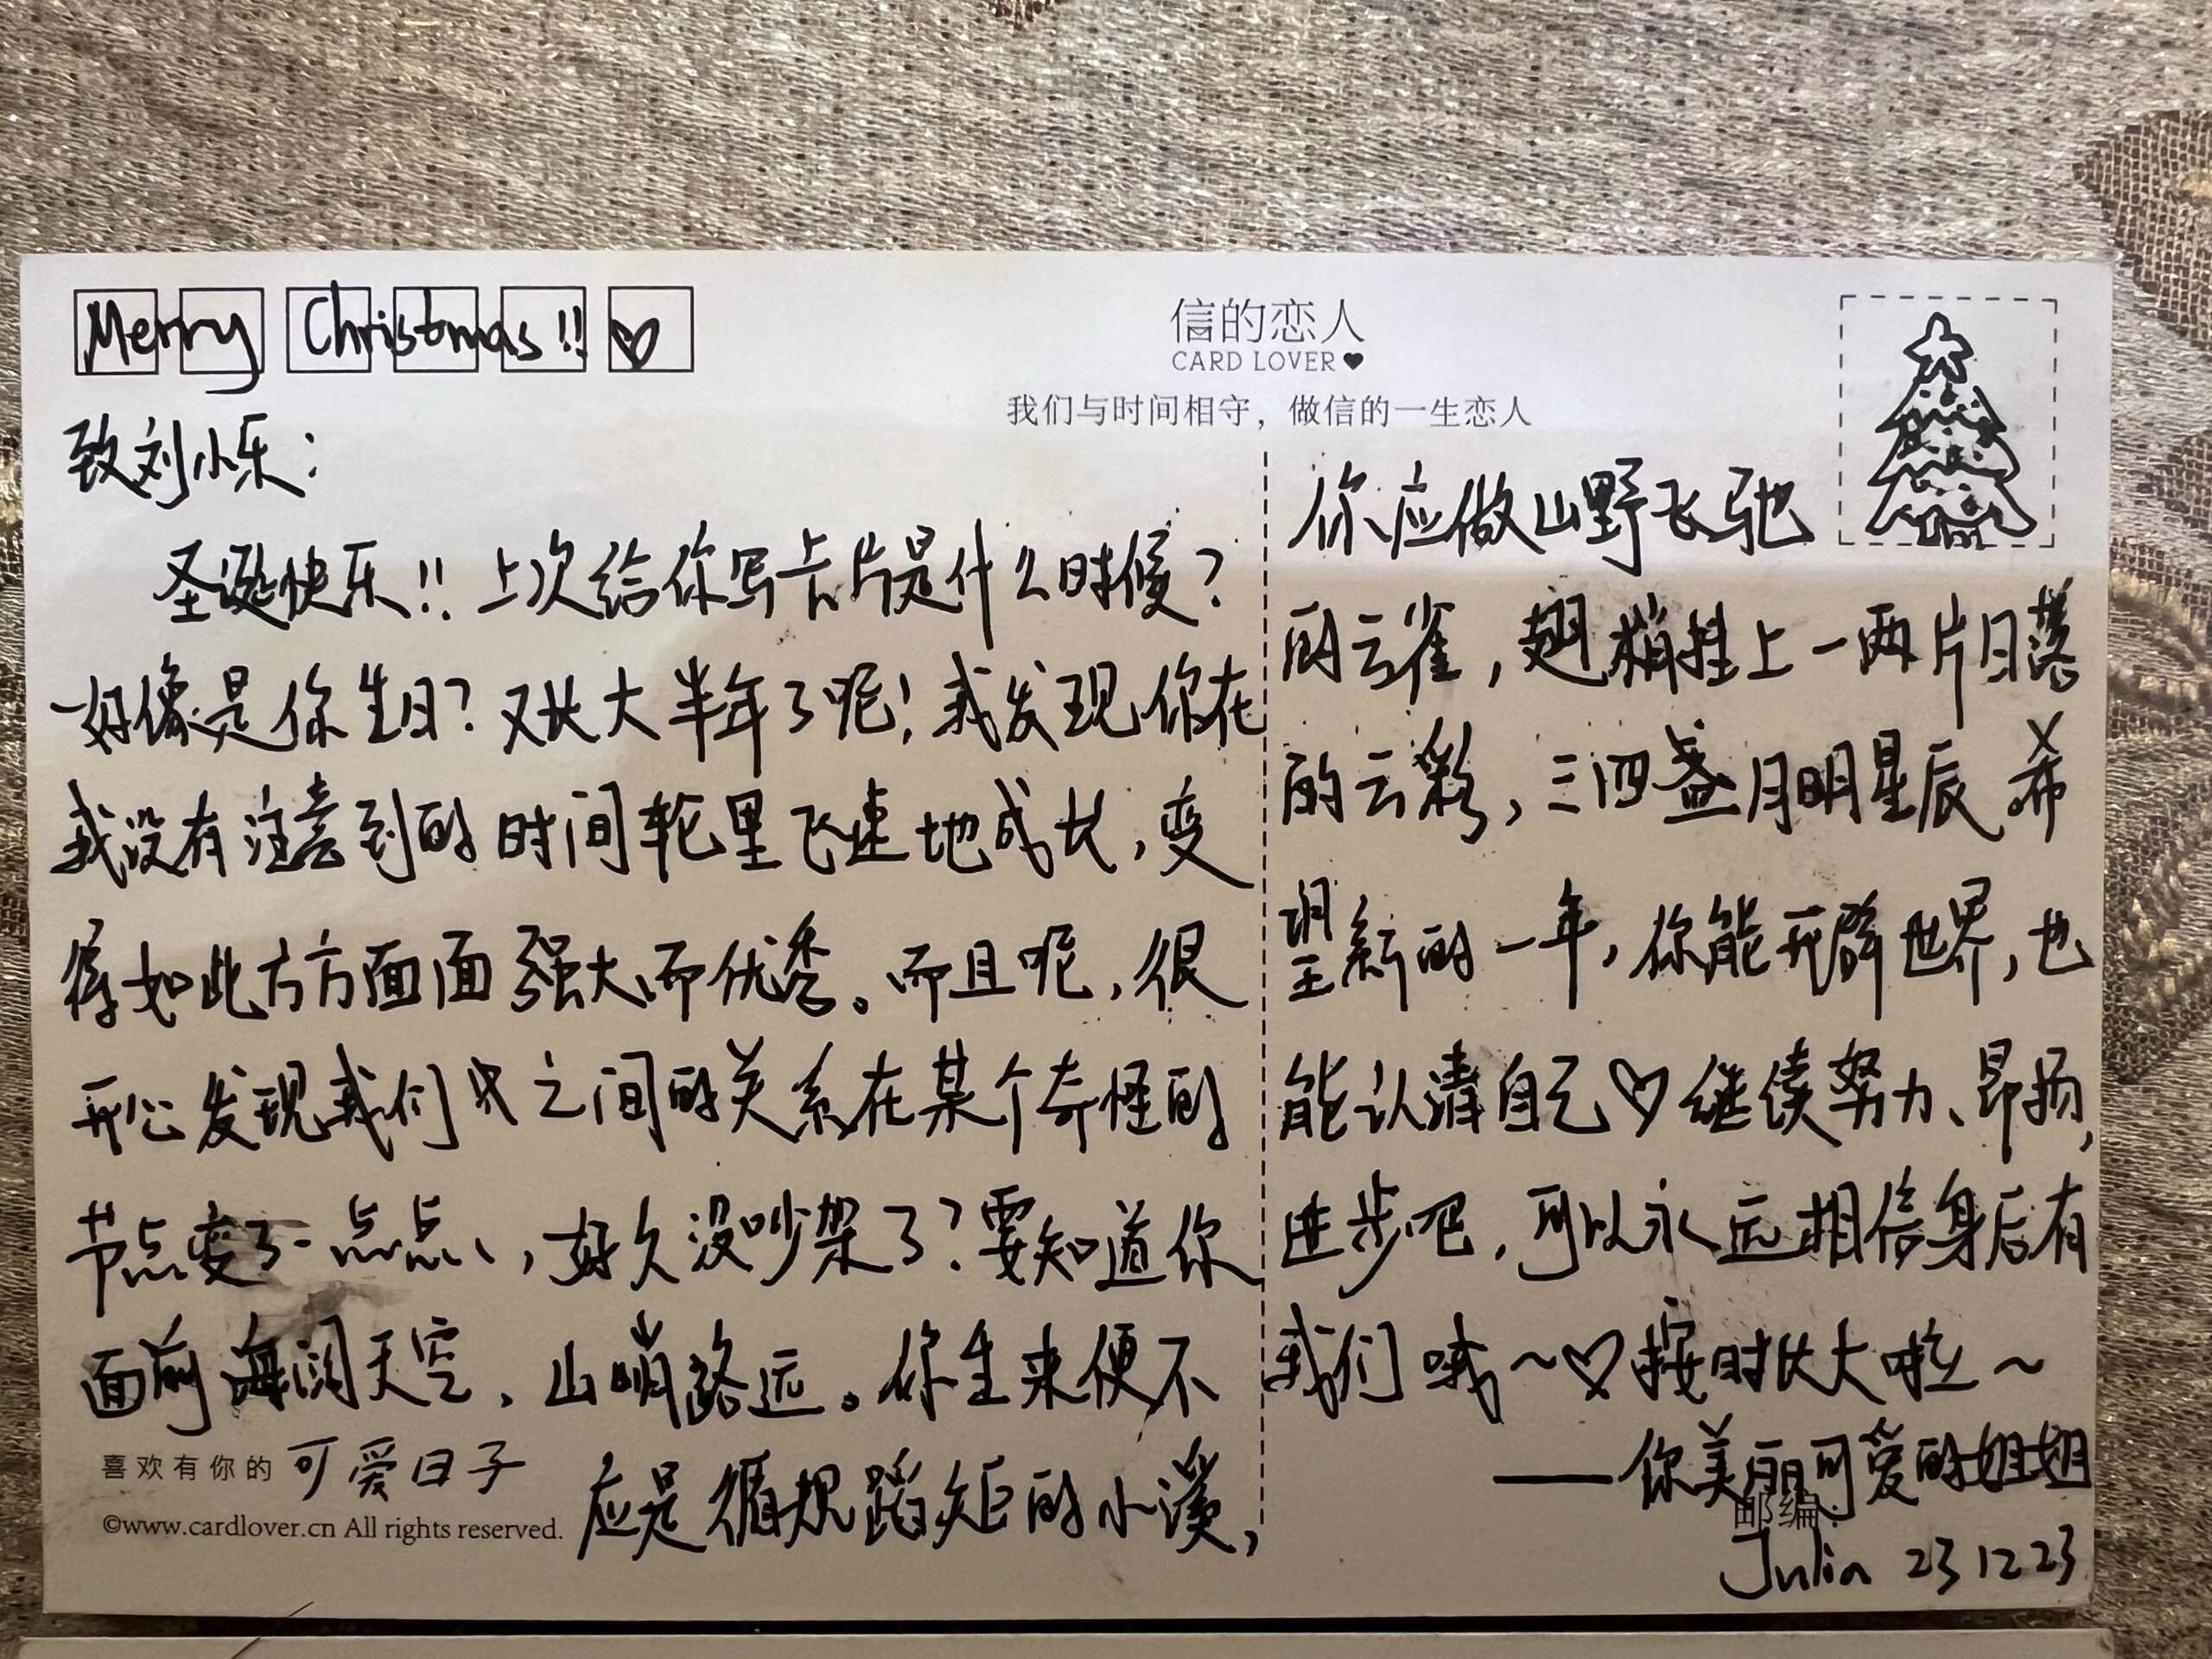 Merry Christmas!! ♡
信的恋人
CARD LOVER♥
我们与时间相守，做信的一生恋人
致刘小乐：
圣诞快乐!! 上次给你写卡片是什么时候？
好像是你生日？又长大半年了呢！我发现你在
我没有注意到的时间轮里飞速地成长，变
得如此方方面面强大而优秀。而且呢，很
开心发现我们之间的关系在某个奇怪的
节点变了一点点、，好久没吵架了？要知道你
面前海阔天空，山峭路远。你生来便不
应是循规蹈矩的小溪，
喜欢有你的可爱日子
©www.cardlover.cn All rights reserved.
你应做山野飞驰
的云雀，翅梢挂上一两片日落
的云彩，三四盏月明星辰 希
望新的一年，你能开辟世界，也
能认清自己♡继续努力、昂扬，
进步吧，可以永远相信身后有
我们哦～♡按时长大啦～
——你美丽可爱的姐姐
邮编：
Julia 23 12 23